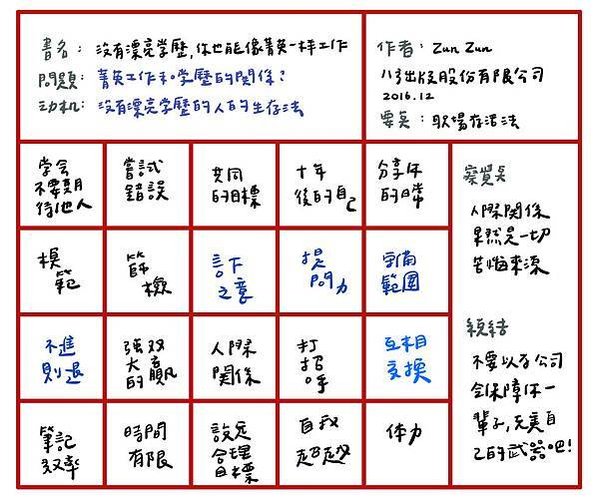 書名：沒有漂亮学歷，你也能像菁英一样工作
問題：菁英工作和学歷的関係？
动机：沒有漂亮学歷的人的生存法
作者：Zun Zun
八方出版股份有限公司
2016.12
要義：职场存活法
学会
不要期
待他人
嘗試
錯誤
共同
的目標
十年
後的自己
分享你
的日常
模
範
篩
檢
言下
之意
提
問力
守備
範圍
不進
則退
強双
大贏
的
人際
関係
打
招
呼
互相
交換
筆記
效率
時間
有限
設定
合理
目標
自我
超越
体力
察覺
人際関係
果然是一切
苦惱來源
總結
不要以为公司
会保障你一
輩子，充実自
己的武器吧！